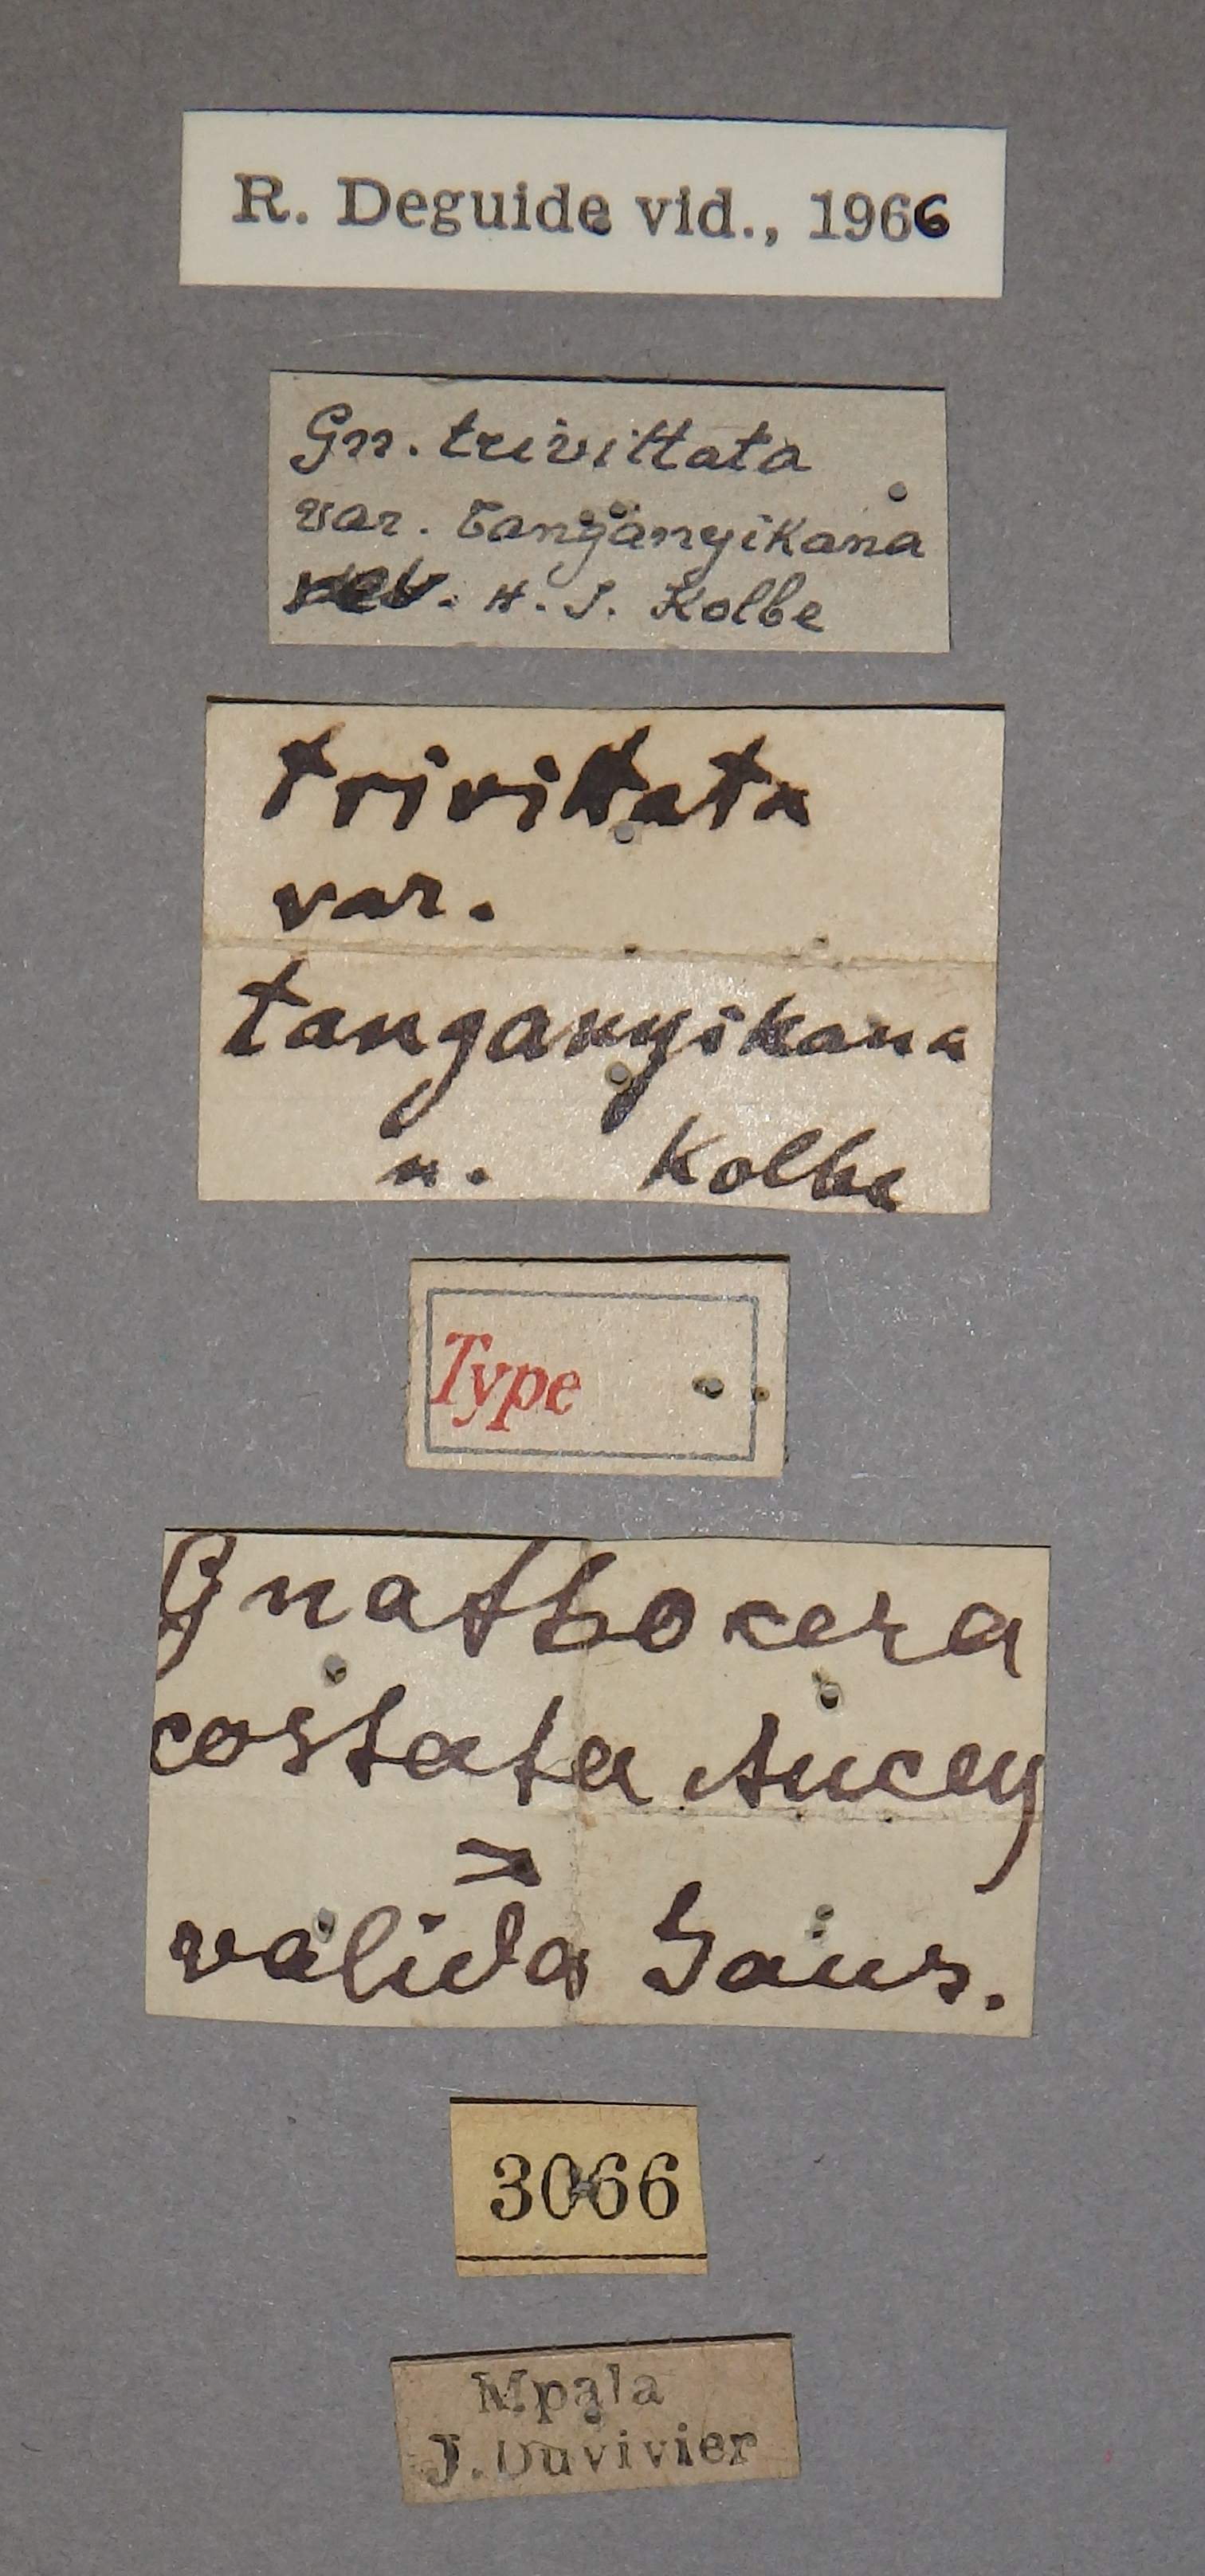 R. Deguide vid., 1966
Gn. trivittata
var. tanganyikana
H. J. Kolbe
trivittata
var.
tanganyikana
n. Kolbe
Type
Gnathocera
costata Ancey
=
valida Jans.
3066
Mpala
J. Duvivier